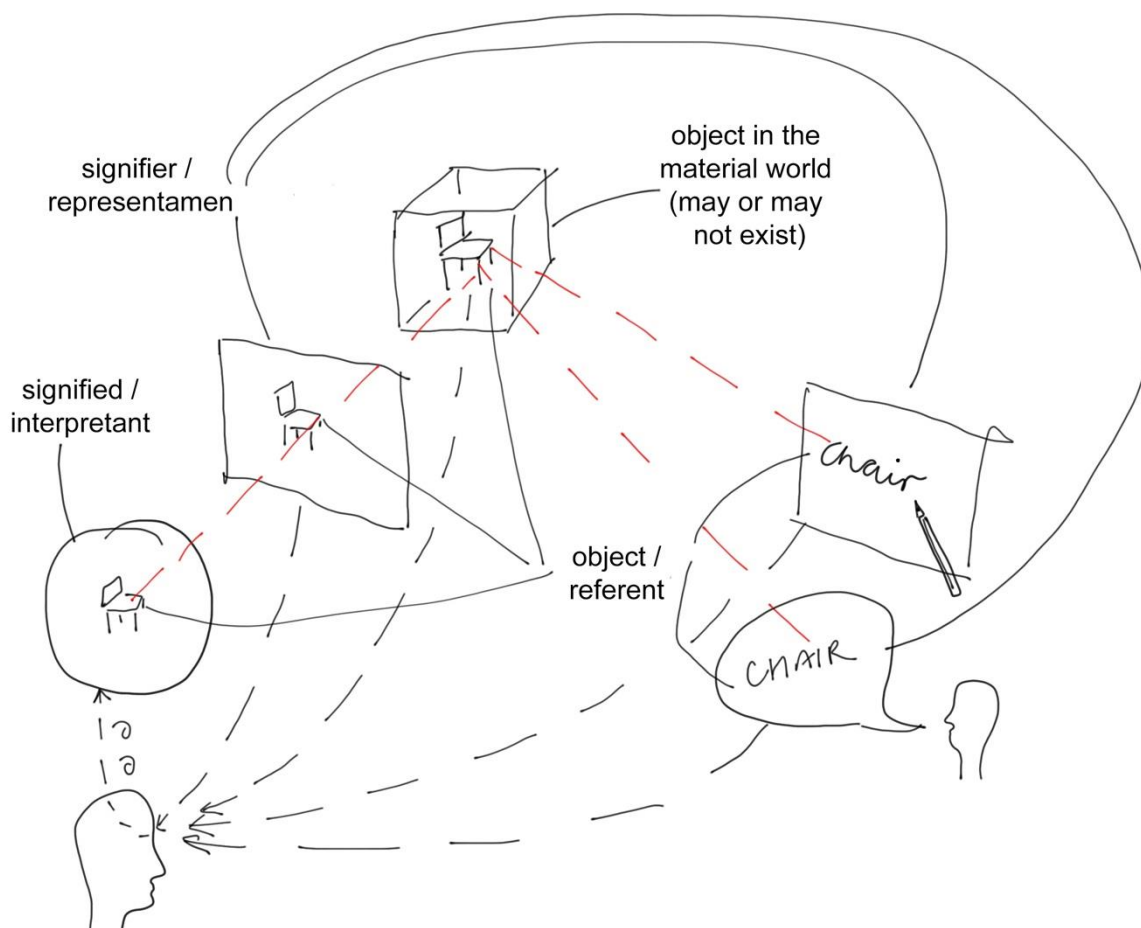 signifier /
representamen
object in the
material world
(may or may
not exist)
signified /
interpretant
chair
object /
referent
CHAIR